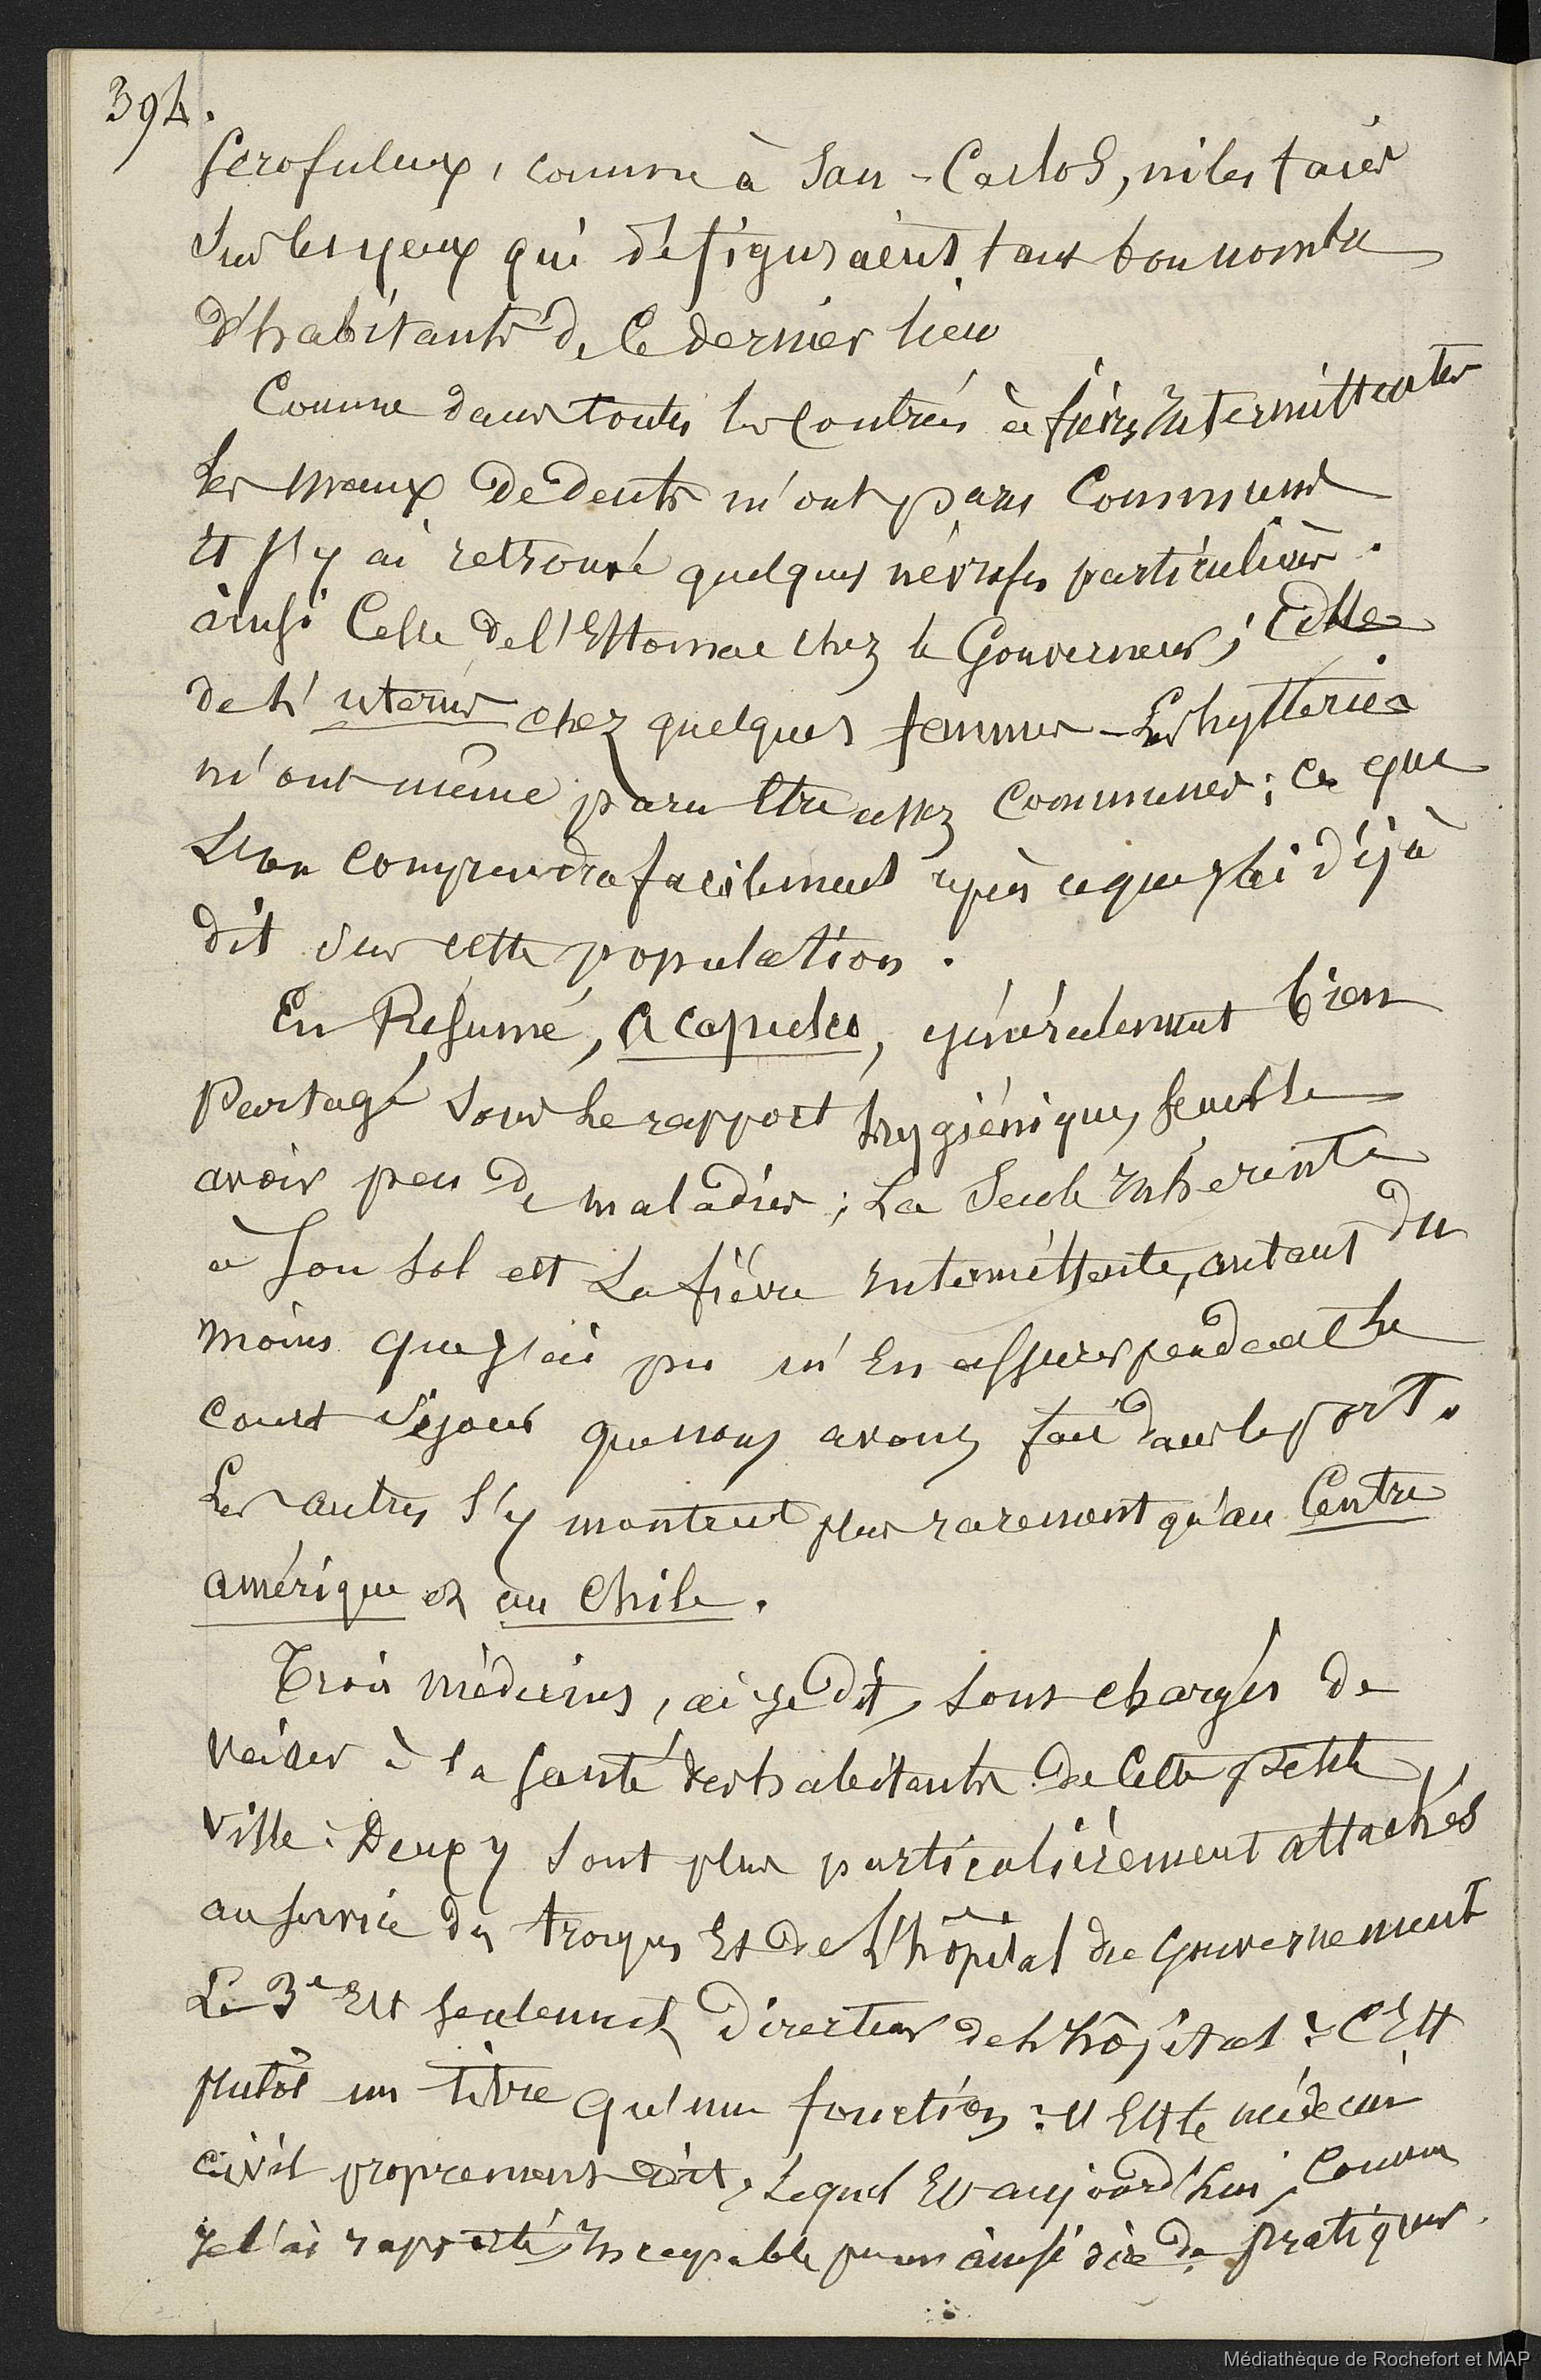 394.
scrofuleux, comme à San-Carlos, ni les taies
sur les yeux qui défiguraient tant bon nombre
d'habitants de ce dernier lieu
Comme dans toutes les contrées à fièvres intermittentes
les maux de dents m'ont paru communs
et j'y ai retrouvé quelques névroses particulières.
ainsi celle de l'Estomac chez le Gouverneur; celle
de l'uterus chez quelques femmes - Les hystéries
m'ont même paru être assez communes; ce que
l'on comprendra facilement après ce que j'ai déjà
dit sur cette population.
En Résumé, Acapulco, généralement bien
partagé sous le rapport hygiénique, semble
avoir peu de maladies; La seule inhérente
à son sol est la fièvre intermittente, autant du
moins que j'ai pu m'en assurer pendant le
court séjour que nous avons fait dans le port.
Les autres s'y montrent plus rarement qu'au Centre
amérique et au Chile.
Trois médecins, ai-je dit, sont chargés de
veiller à la santé des habitants de cette petite
ville: Deux y sont plus particulièrement attachés
au service des troupes et de l'hôpital du gouvernement
Le 3e est seulement directeur de l'hôpital: c'est
plutôt un titre qu'une fonction: il est le médecin
civil proprement dit, lequel est aujourd'hui, comme
je l'ai rapporté, incapable pour ainsi dire de pratiquer.
Médiathèque de Rochefort et MAP